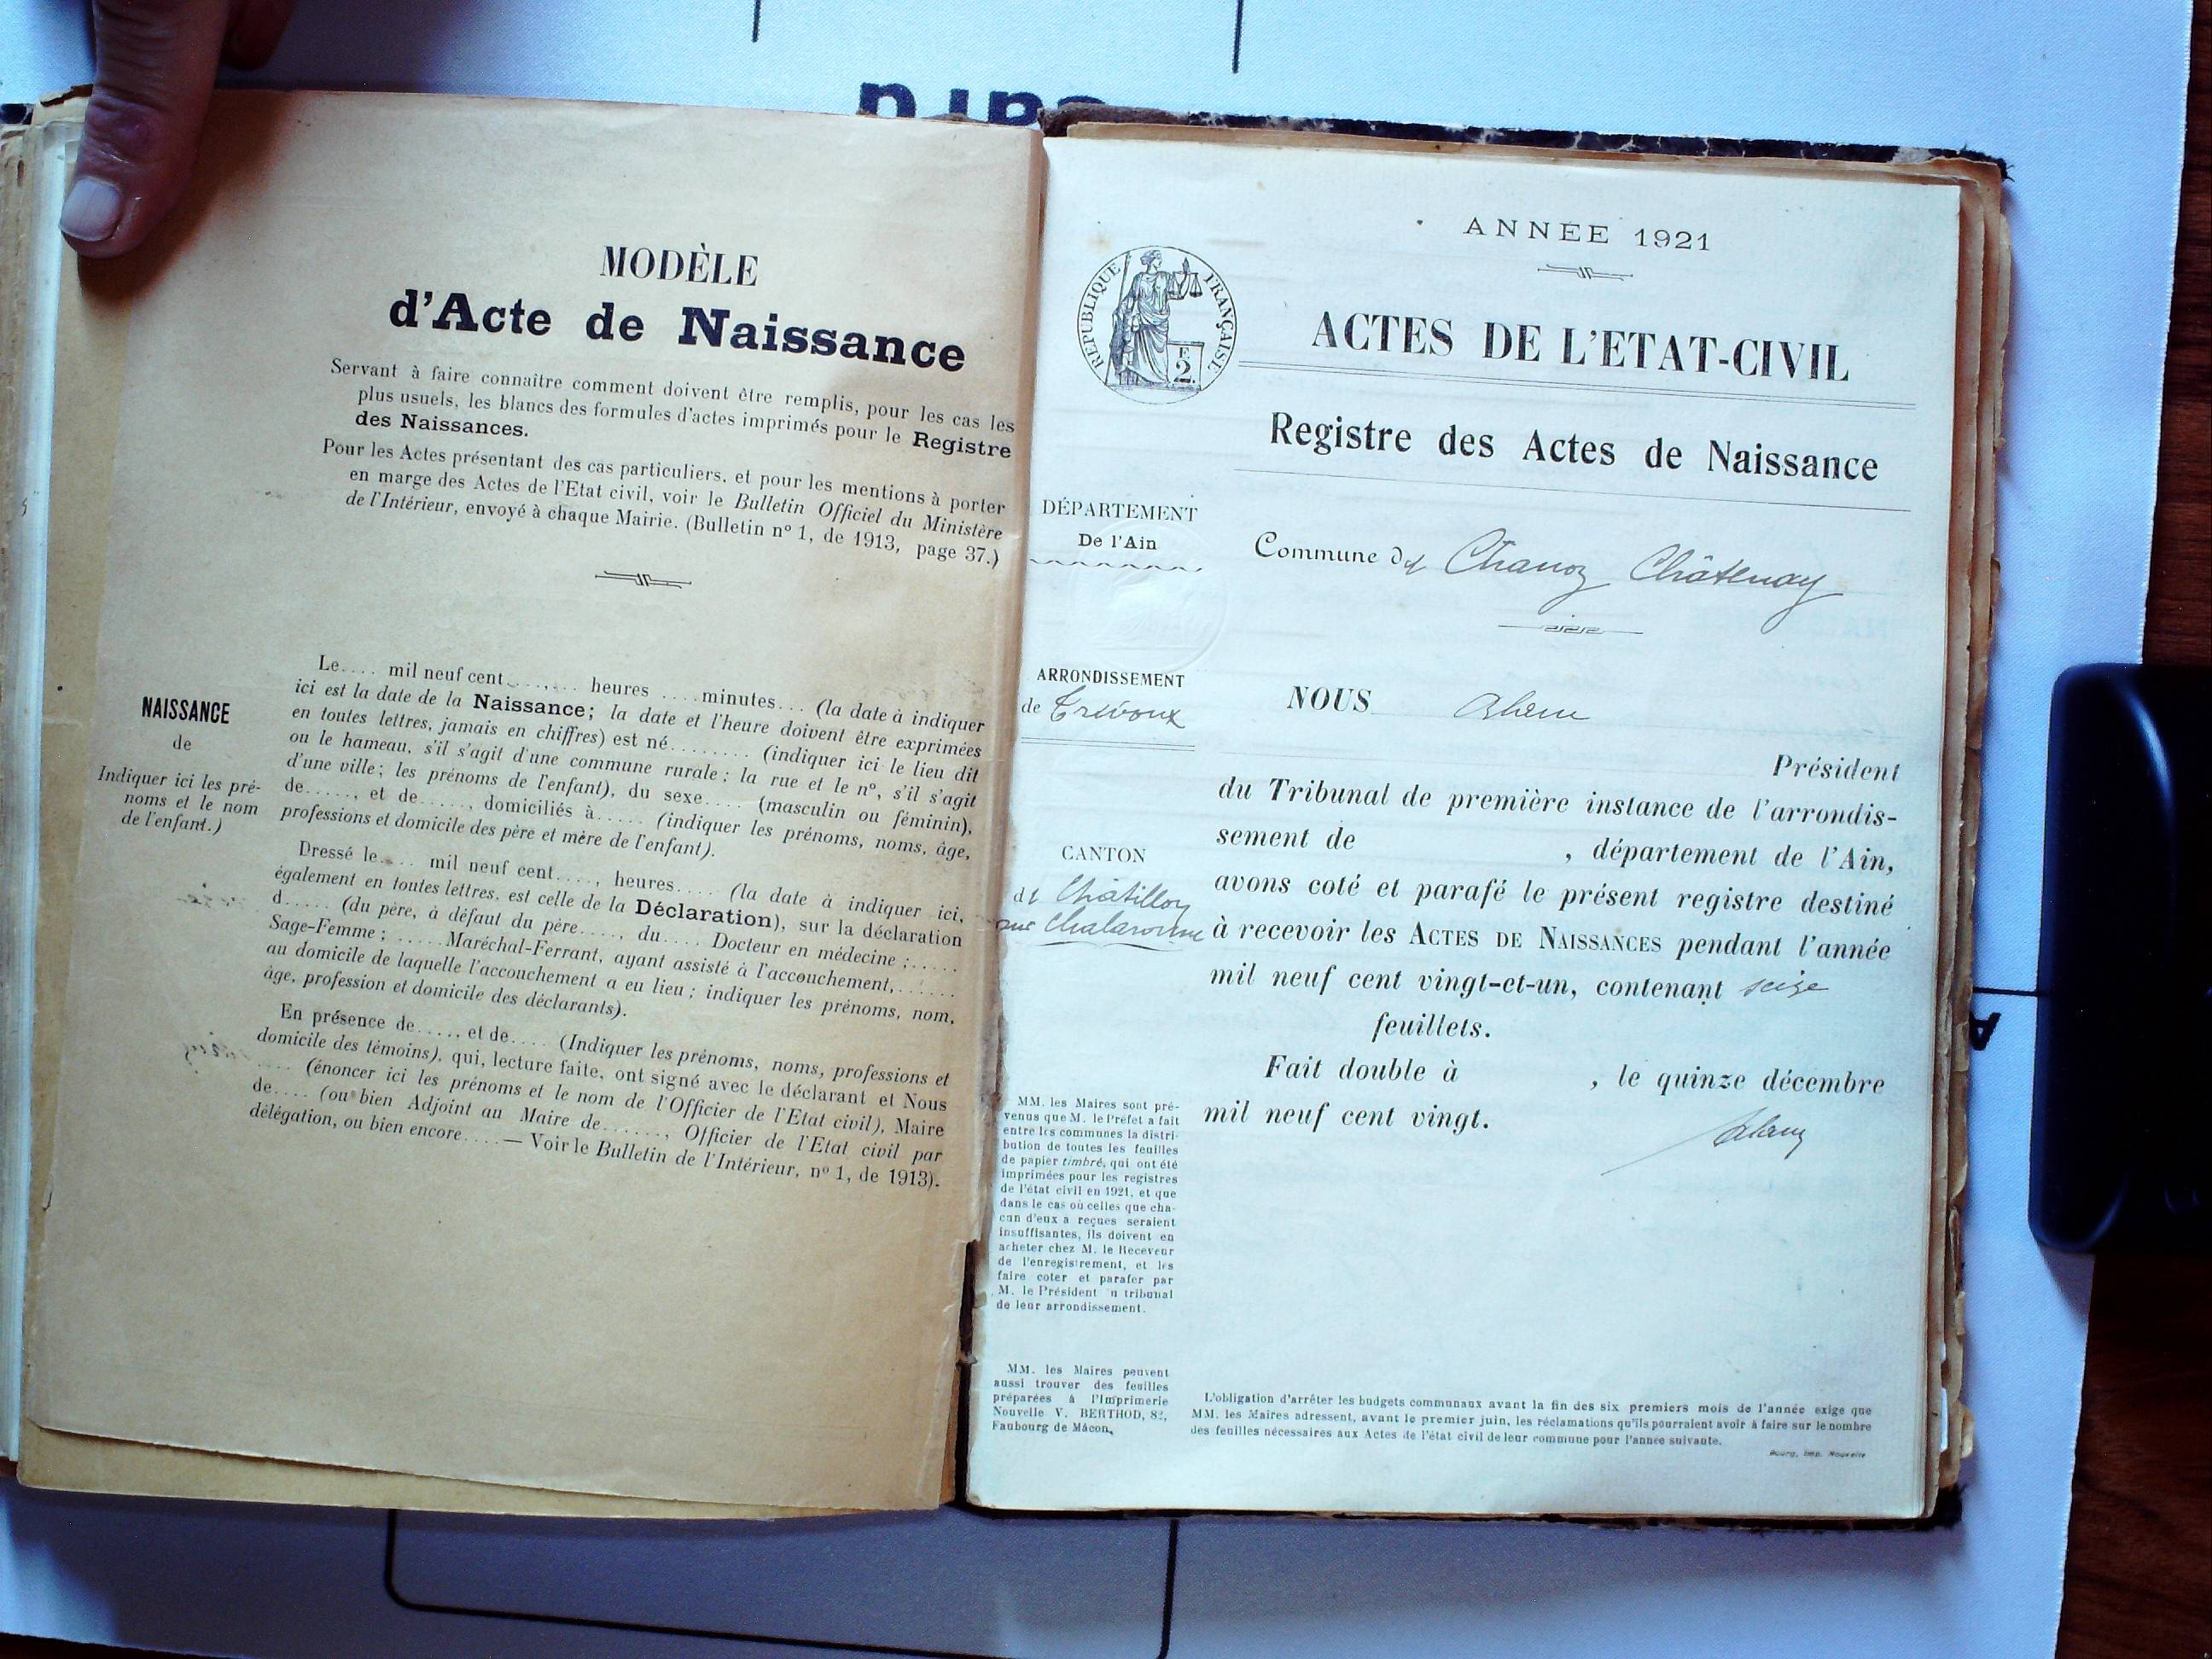 MODÈLE
d'Acte de Naissance
Servant à faire connaître comment doivent être remplis, pour les cas les
plus usuels, les blancs des formules d'actes imprimés pour le Registre
des Naissances.
Pour les Actes présentant des cas particuliers, et pour les mentions à porter
en marge des Actes de l'Etat civil, voir le Bulletin Officiel du Ministère
de l'Intérieur, envoyé à chaque Mairie. (Bulletin nº 1, de 1913, page 37.)
NAISSANCE
de
Indiquer ici les pré-
noms et le nom
de l'enfant.)
Le.... mil neuf cent........ heures ....minutes... (la date à indiquer
ici est la date de la Naissance; la date et l'heure doivent être exprimées
en toutes lettres, jamais en chiffres) est né........ (indiquer ici le lieu dit
ou le hameau, s'il s'agit d'une commune rurale; la rue et le nº, s'il s'agit
d'une ville; les prénoms de l'enfant), du sexe.... (masculin ou féminin),
de....., et de....., domiciliés à..... (indiquer les prénoms, noms, âge,
professions et domicile des père et mère de l'enfant).
Dressé le.... mil neuf cent...., heures.... (la date à indiquer ici,
également en toutes lettres, est celle de la Déclaration), sur la déclaration
d..... (du père, à défaut du père...., du.... Docteur en médecine;.....
Sage-Femme; .....Maréchal-Ferrant, ayant assisté à l'accouchement,......
au domicile de laquelle l'accouchement a eu lieu; indiquer les prénoms, nom,
âge, profession et domicile des déclarants).
En présence de..... et de.... (Indiquer les prénoms, noms, professions et
domicile des témoins), qui, lecture faite, ont signé avec le déclarant et Nous
.... (énoncer ici les prénoms et le nom de l'Officier de l'Etat civil), Maire
de.... (ou bien Adjoint au Maire de......, Officier de l'Etat civil par
délégation, ou bien encore....— Voir le Bulletin de l'Intérieur, nº 1, de 1913).
ANNÉE 1921
RÉPUBLIQUE FRANÇAISE
2 F.
ACTES DE L'ETAT-CIVIL
Registre des Actes de Naissance
DÉPARTEMENT
De l'Ain
Commune de Chanoz Châtenay
ARRONDISSEMENT
de Trévoux
CANTON
de Châtillon
sur Chalaronne
NOUS
Président
du Tribunal de première instance de l'arrondis-
sement de , département de l'Ain,
avons coté et parafé le présent registre destiné
à recevoir les ACTES DE NAISSANCES pendant l'année
mil neuf cent vingt-et-un, contenant seize
feuillets.
Fait double à , le quinze décembre
mil neuf cent vingt.
MM. les Maires sont pré-
venus que M. le Préfet a fait
entre les communes la distri-
bution de toutes les feuilles
de papier timbré, qui ont été
imprimées pour les registres
de l'état civil en 1921, et que
dans le cas où celles que cha-
cun d'eux a reçues seraient
insuffisantes, ils doivent en
acheter chez M. le Receveur
de l'enregistrement, et les
faire coter et parafer par
M. le Président u tribunal
de leur arrondissement.
MM. les Maires peuvent
aussi trouver des feuilles
préparées à l'Imprimerie
Nouvelle V. BERTHOD, 82,
Faubourg de Mâcon.
L'obligation d'arrêter les budgets communaux avant la fin des six premiers mois de l'année exige que
MM. les Maires adressent, avant le premier juin, les réclamations qu'ils pourraient avoir à faire sur le nombre
des feuilles nécessaires aux Actes de l'état civil de leur commune pour l'année suivante.
Bourg, Imp. Nouvelle